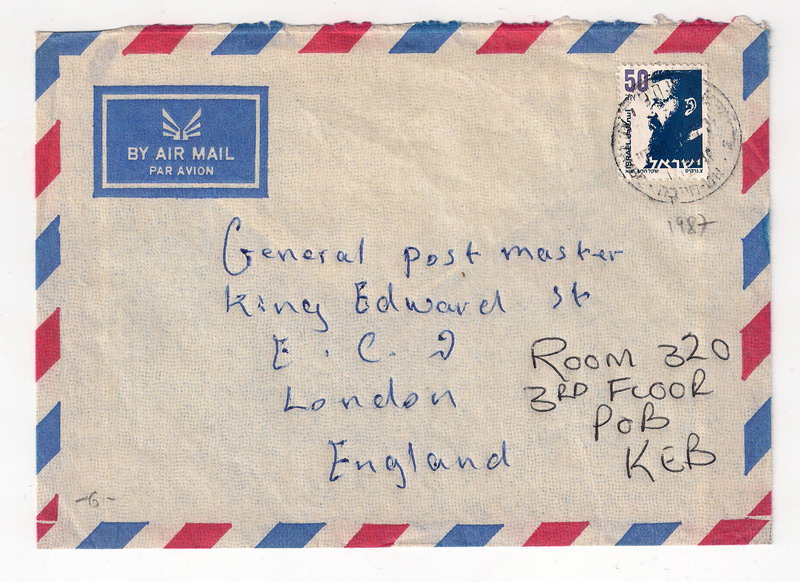 BY AIR MAIL
PAR AVION
50
ISRAEL
ישראל
1987
General post master
King Edward St
E. C. 1
London
England
ROOM 320
3RD FLOOR
POB
KEB
-6-